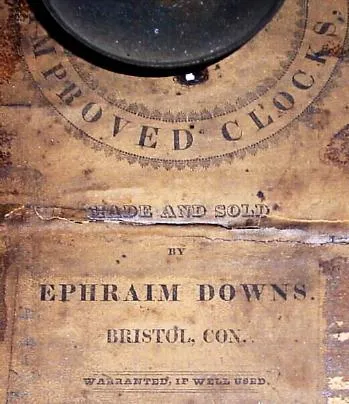 IMPROVED CLOCKS.
MADE AND SOLD
BY
EPHRAIM DOWNS.
BRISTOL, CON.
WARRANTED, IF WELL USED.